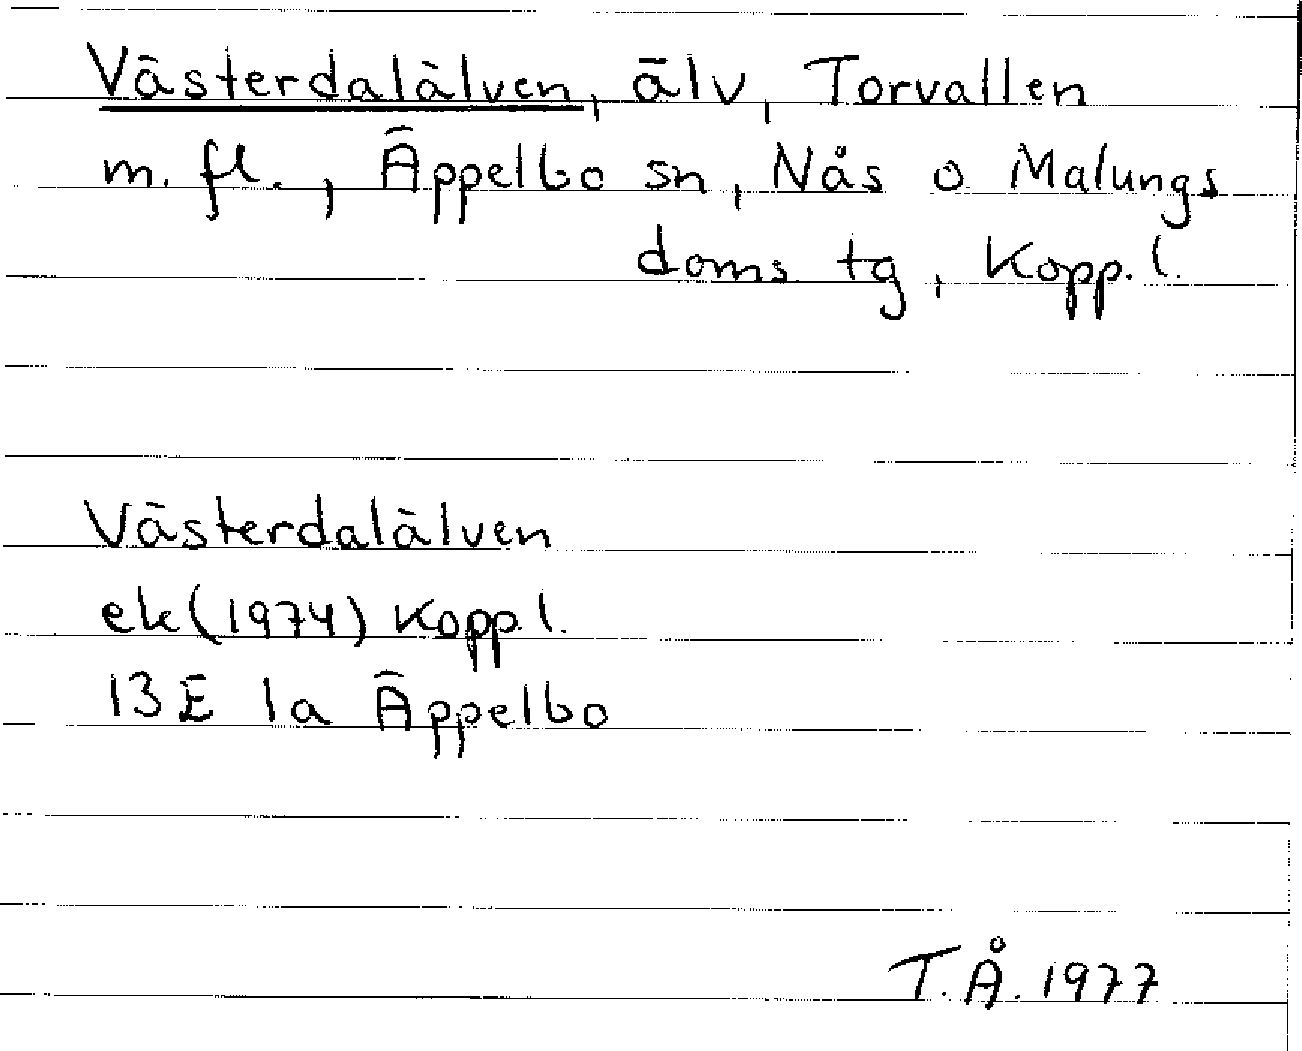 Västerdalälven, älv, Torvallen
m. fl., Äppelbo sn, Nås o Malungs
doms tg, Kopp. l.
Västerdalälven
ek (1974) Kopp l.
13 E 1a Äppelbo
T. Å. 1977